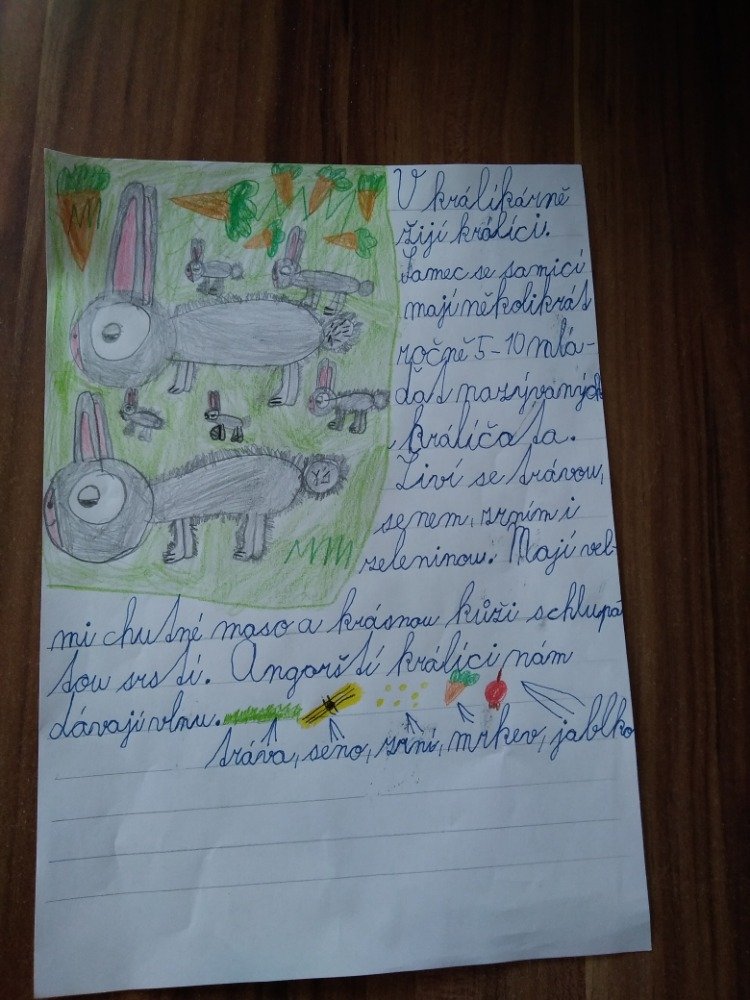 V králíkárně
žijí králíci.
Samec se samicí
mají několikrát
ročně 5-10 mlá-
ďat nazývaných
králíčata.
Živí se trávou,
senem, zrním i
zeleninou. Mají vel-
mi chutné maso a krásnou kůži schlupa
tou srstí. Angorští králíci nám
dávají vlnu.
tráva, seno, zrní, mrkev, jablko